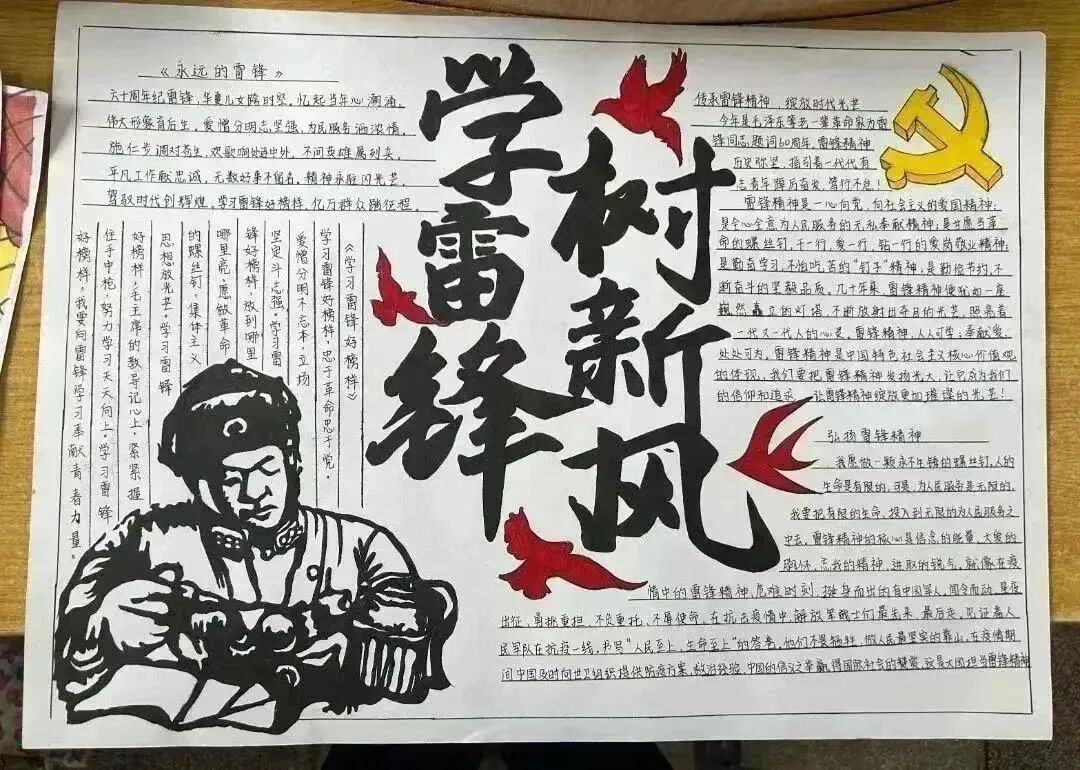 学雷锋
树新风
《永远的雷锋》
六十周年纪雷锋，华夏儿女隨时坚。忆起当年心潮涌，
伟大形象育后生，爱憎分明志坚强，为民服务洒浓情。
施仁步调对苍生，欢歌响处海中外，不问英雄属列兵。
平凡工作献忠诚，无数好事不留名。精神永驻闪光芒，
驾驭时代创辉煌。学习雷锋好榜样，亿万群众踏征程。
《学习雷锋好榜样》
学习雷锋好榜样，忠于革命忠于党。
爱憎分明不忘本，立场
坚定斗志强。学习雷
锋好榜样，放到哪里
哪里亮，愿做革命
的螺丝钉，集体主义
思想放光芒。学习雷锋
好榜样，毛主席的教导记心上，紧紧握
住手中枪，努力学习天天向上。学习雷锋
好榜样，我要向雷锋学习奉献青春力量。
传承雷锋精神，绽放时代光芒
今年是毛泽东等老一辈革命家为雷
锋同志题词60周年，雷锋精神
历史弥坚，指引着一代代有
志青年踔厉奋发，笃行不怠！
雷锋精神是一心向党，向社会主义的爱国精神；
是全心全意为人民服务的无私奉献精神；是甘愿当革
命的螺丝钉，干一行，爱一行，钻一行的爱岗敬业精神；
是勤奋学习，不怕吃苦的“钉子”精神；是勤俭节约，不
断奋斗的坚毅品质。几十年来，雷锋精神便犹如一座
巍然矗立的灯塔，不断放射出夺目的光芒，照亮着
一代又一代人的心灵。雷锋精神，人人可学；奉献爱
处处可为，雷锋精神是中国特色社会主义核心价值观
的体现，我们要把雷锋精神发扬光大，让它成为我们
的信仰和追求，让雷锋精神绽放更加璀璨的光芒！
弘扬雷锋精神
我愿做一颗永不生锈的螺丝钉，人的
生命是有限的，可是，为人民服务是无限的，
我要把有限的生命，投入到无限的为人民服务之
中去，雷锋精神的核心是信念的能量，大爱的
胸怀，忘我的精神，进取的锐气。就像在疫
情中的雷锋精神，危难时刻，挺身而出的有中国军人，闻令而动，星夜
出征，勇挑重担，不负重托，不辱使命，在抗击疫情中，解放军战士们最先来，最后走，见证着人
民军队在抗疫一线，书写“人民至上，生命至上”的答卷，他们不畏牺牲，做人民最坚实的靠山，在疫情期
间中国及时向世卫组织提供防疫方案，救治经验，中国的信义之举赢得国际社会的赞赏，这是大国担当雷锋精神